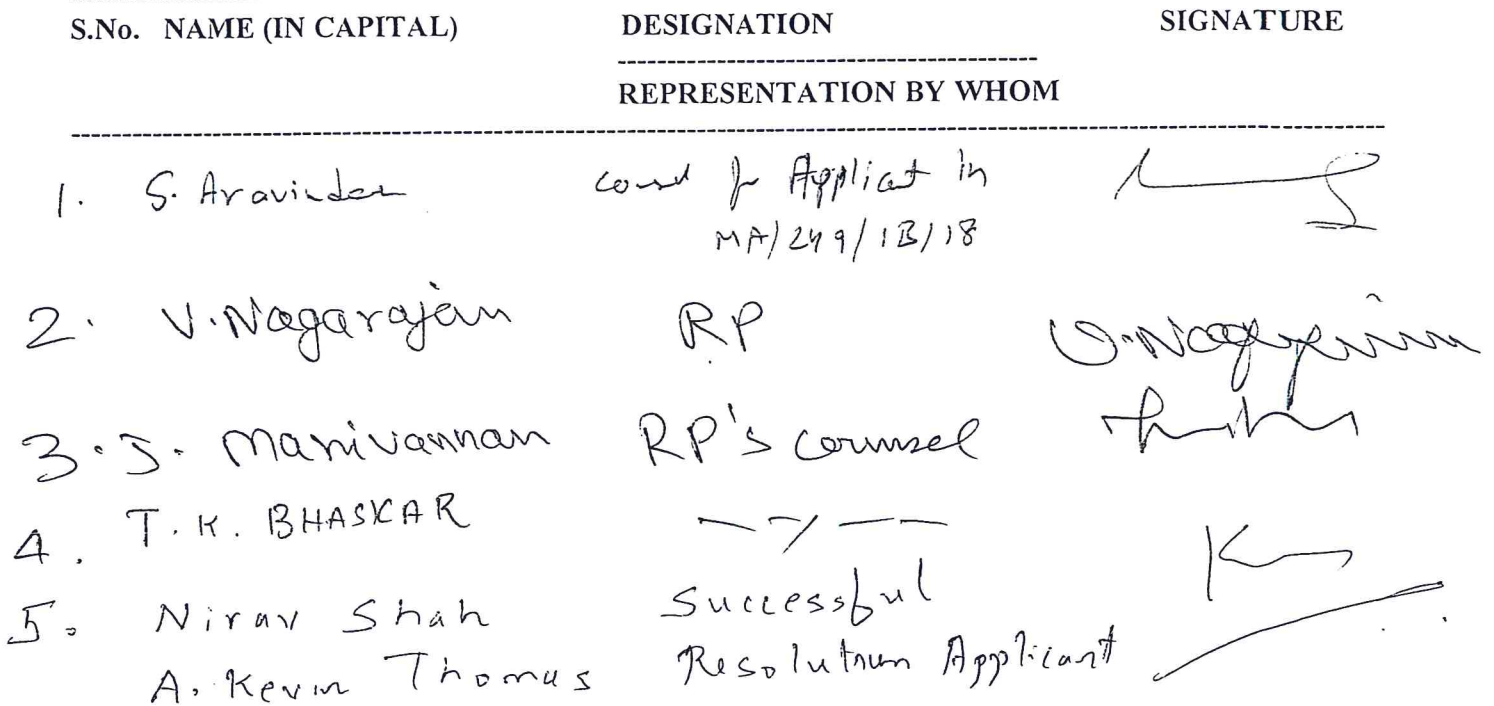 S.No. NAME (IN CAPITAL) DESIGNATION SIGNATURE
REPRESENTATION BY WHOM
1. S. Aravindan Counsel for Applicant in
MA/249/IB/18
2. V. Nagarajan RP V. Nagarajan
3. J. Manivannan RP's counsel
4. T. K. BHASKAR — 〃 —
5. Nirav Shah Successful
A. Kevin Thomas Resolution Applicant